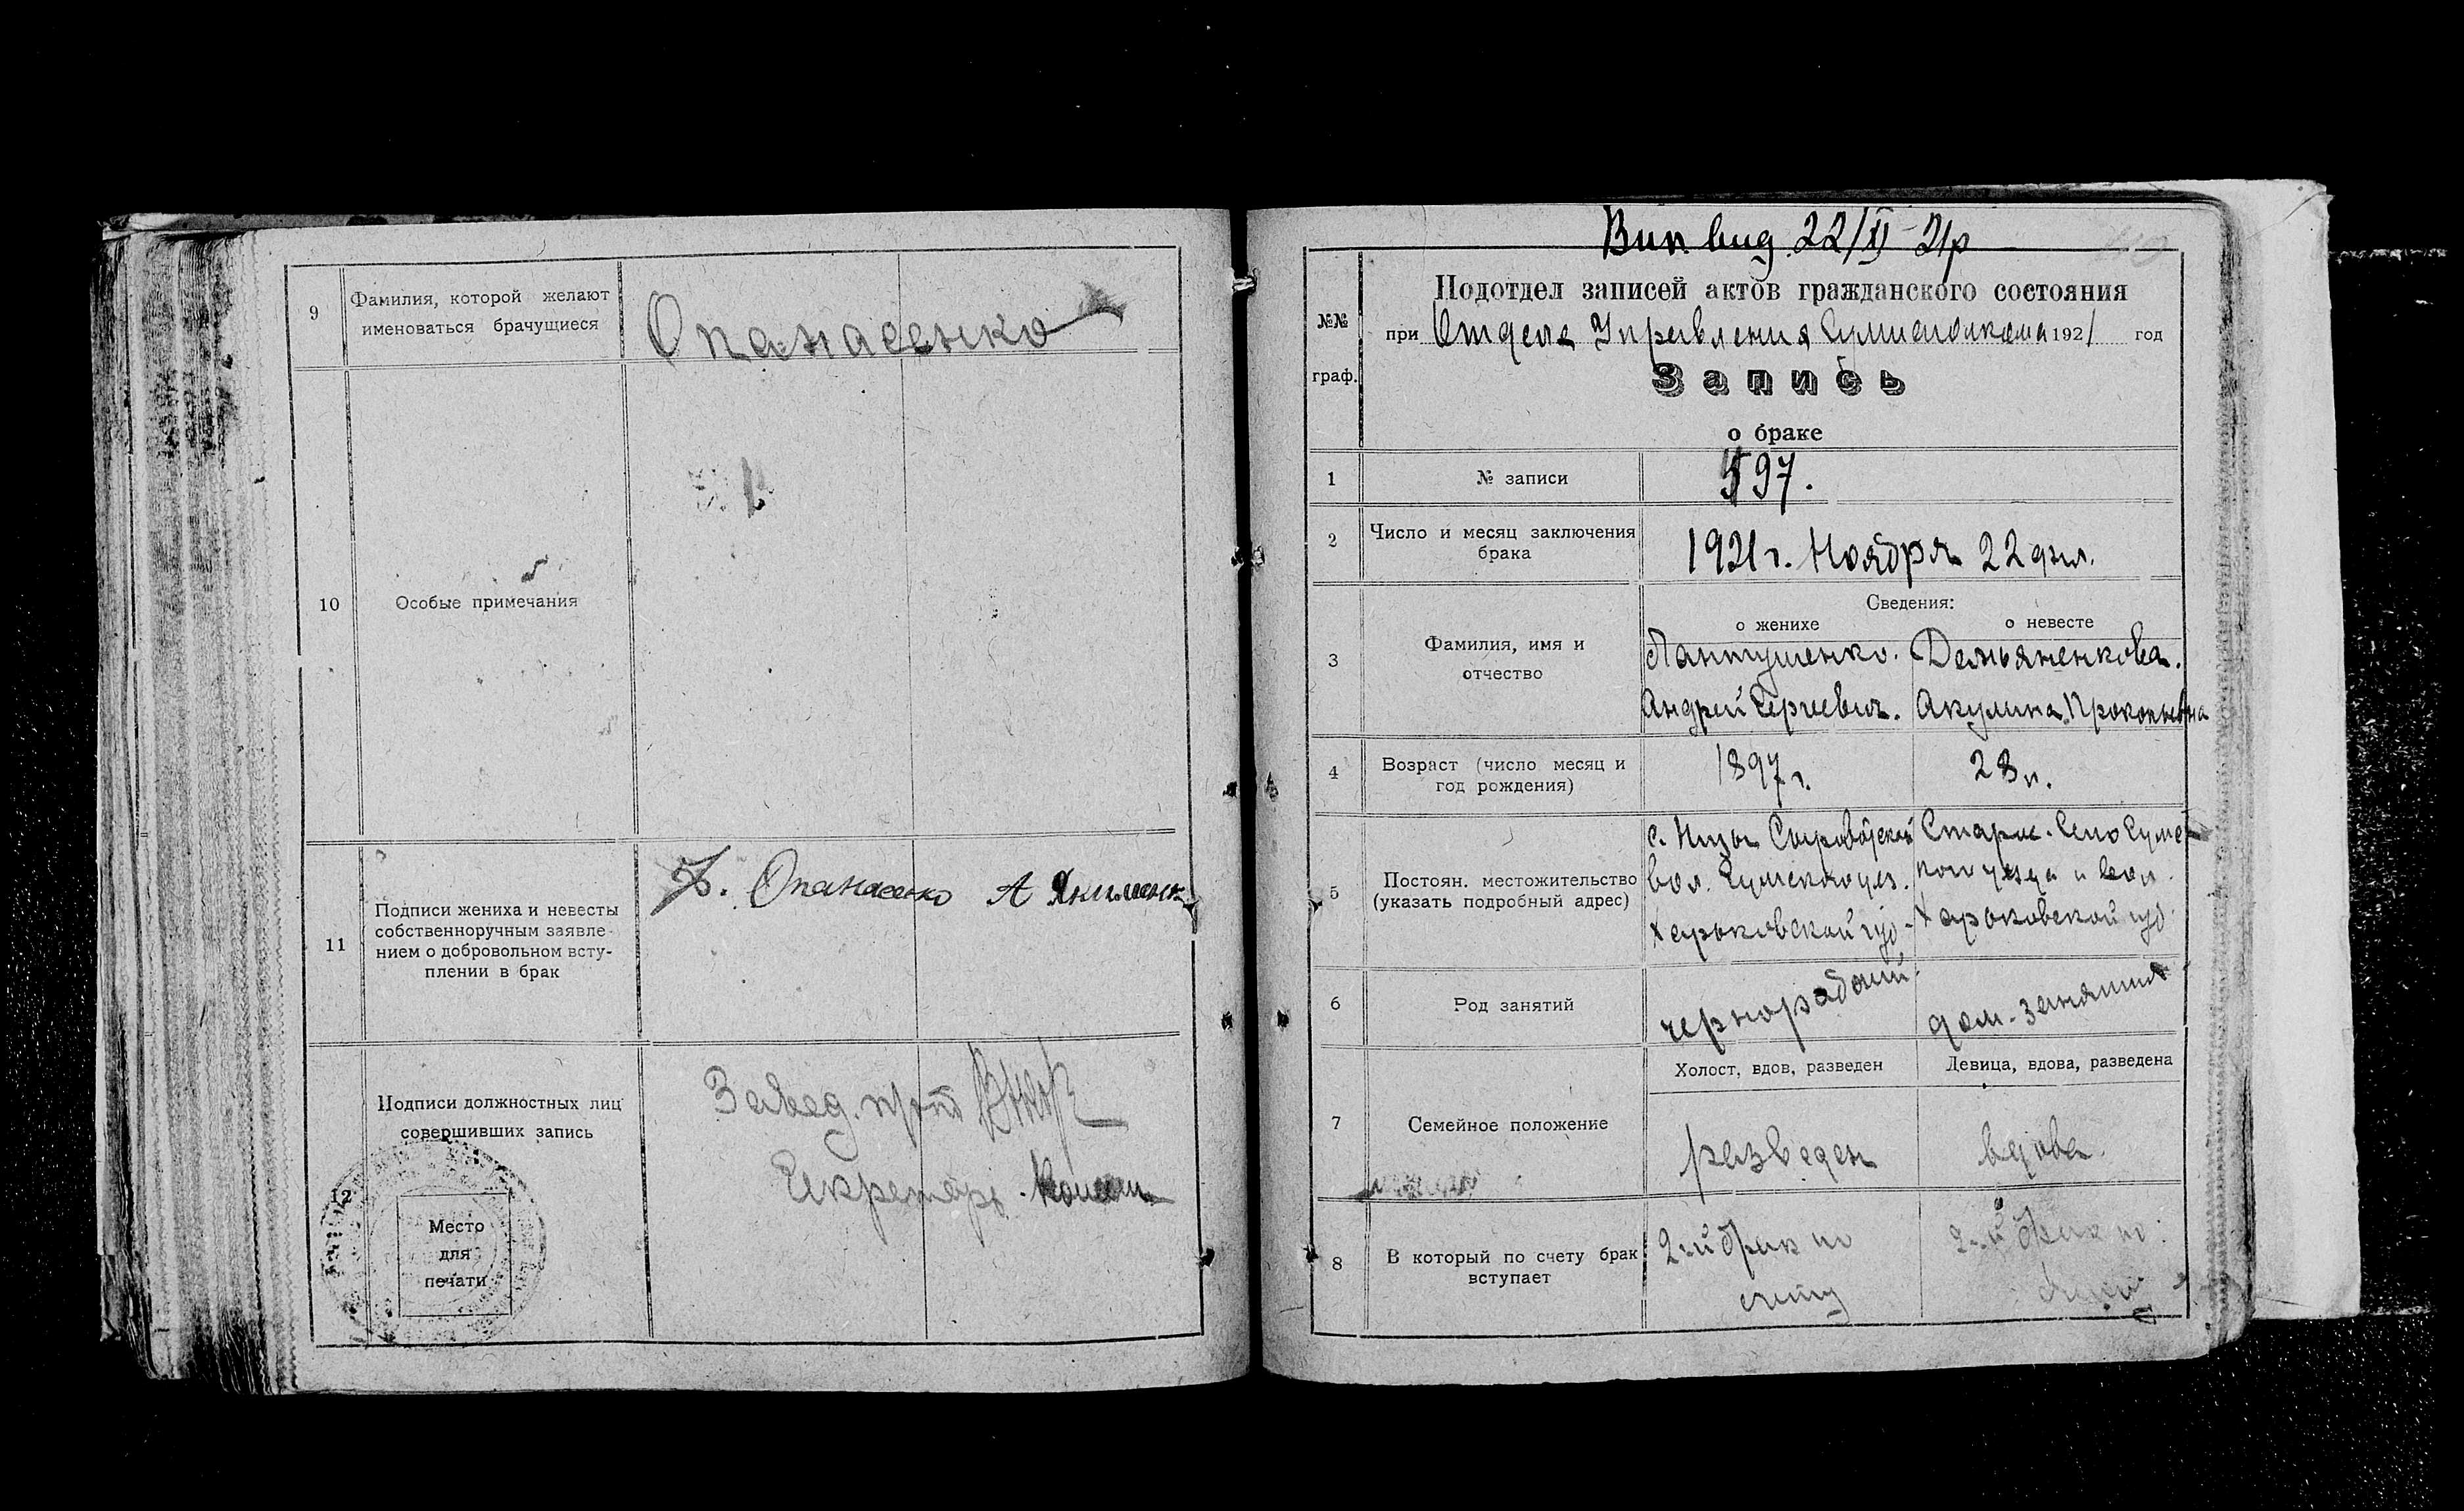 9
Фамилия, которой желают
именоваться брачущиеся
Опанасенко
10
Особые примечания
11
Подписи жениха и невесты
собственноручным заявле-
нием о добровольном всту-
плении в брак
Опанасенко А Якименк
12
Подписи должностных лиц
совершивших запись
Завед.
Секретарь
Место
для
печати
Вип. вид. 22/XI-21р
№№
граф.
Подотдел записей актов гражданского состояния
при Отделе Управления 1921 год
Запись
о браке
1
№ записи
597.
2
Число и месяц заключения
брака
1921 г. Ноября 22 дня.
Сведения:
о женихе
о невесте
3
Фамилия, имя и
отчество
Пантушенко. Демьяненкова.
Андрей Сергеевич. Акулина Прокопьевна
4
Возраст (число месяц и
год рождения)
1897 г.
28 л.
5
Постоян. местожительство
(указать подробный адрес)
с. Низы Сыроватской
вол. Сумского уез.
Харьковской губ.
Старое Село Сумс
кого уезда и вол.
Харьковской губ.
6
Род занятий
чернорабочий
дом. занятия
Холост, вдов, разведен
Девица, вдова, разведена
7
Семейное положение
разведен
вдова.
8
В который по счету брак
вступает
2-ий брак по
счету
2-ий брак по
счету